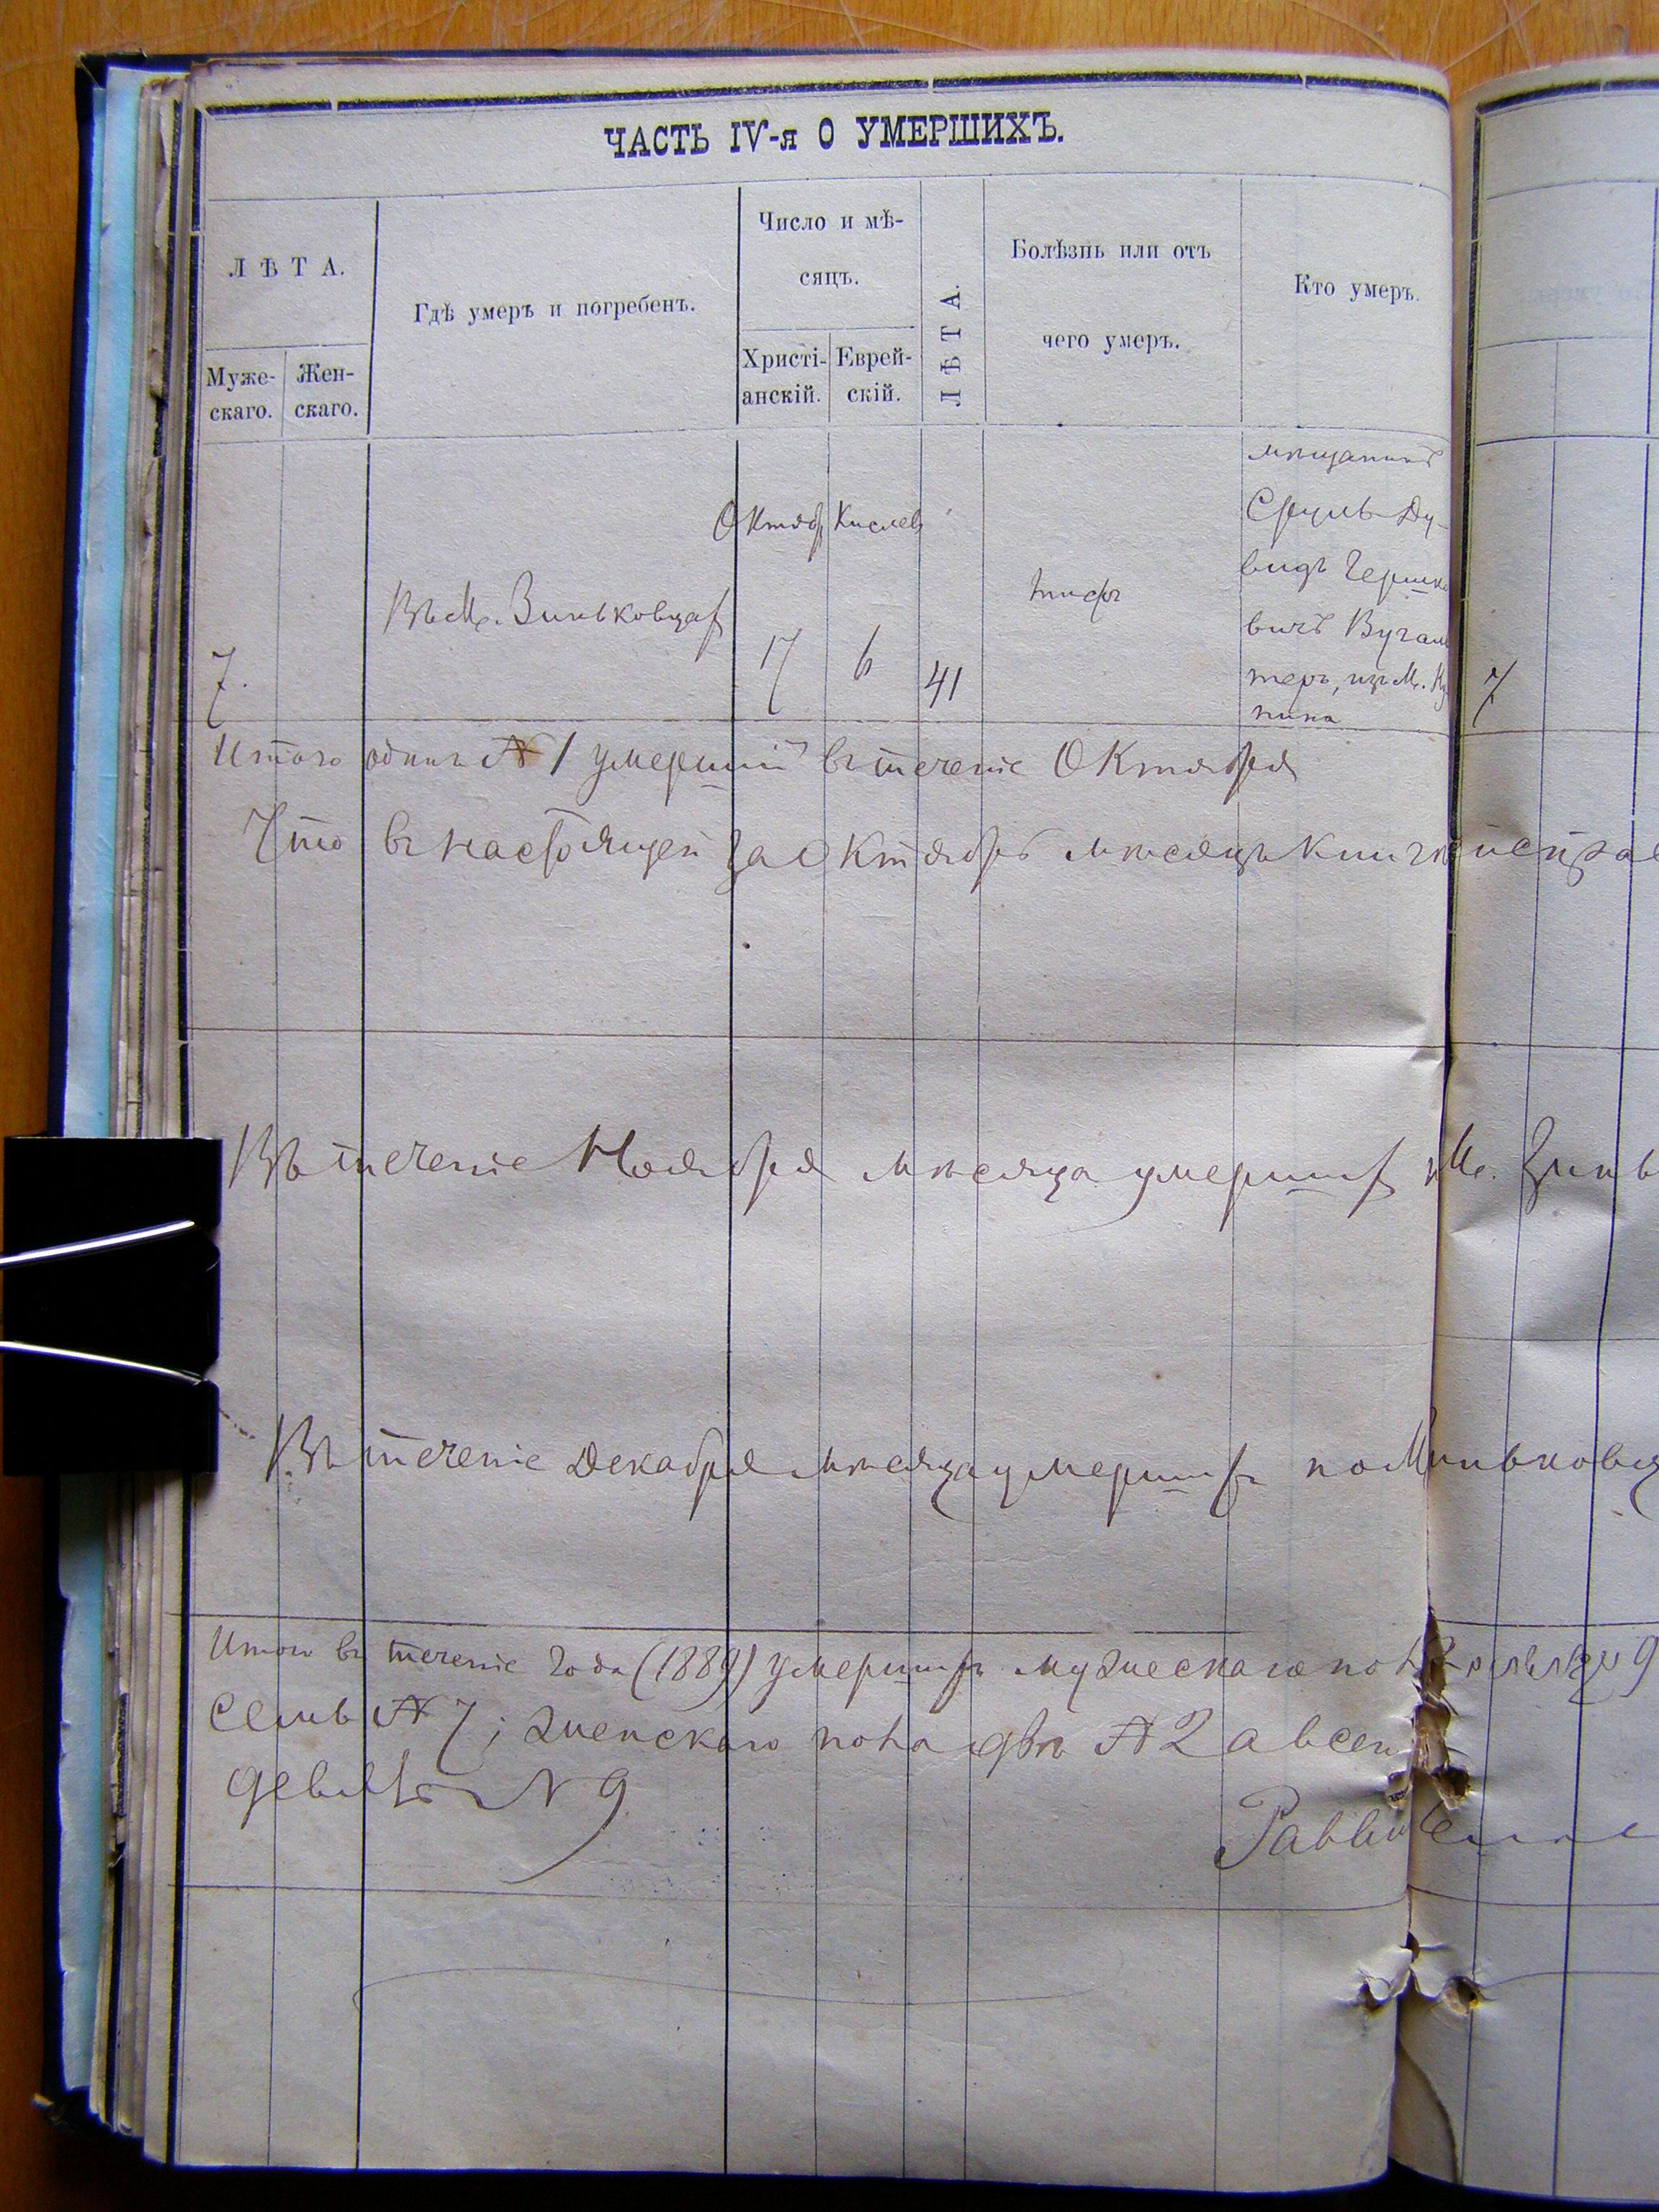 ЧАСТЬ IV-я О УМЕРШИХЪ.
ЛѢТА.
Муже-
скаго.
Жен-
скаго.
Гдѣ умеръ и погребенъ.
Число и мѣ-
сяцъ.
Христі-
анскій.
Еврей-
скій.
ЛѢТА.
Болѣзнь или отъ
чего умеръ.
Кто умеръ.
7.
Въ М. Зиньковцах
Октяб
17
Кислев
6
41
тифъ
мѣщанинъ
Сруль Ду-
видъ Гершко
вичъ Вугал
теръ, изъ М. Ку
пина
7
Итого одинъ № 1 умершій въ теченіе Октября
Что въ настоящей за Октябрь мѣсяцъ книгѣ
Въ теченіе Ноября мѣсяца умерших М. Зинь
Въ теченіе Декабря мѣсяца умерших по
Итого въ теченіе года (1889) умерших мужескаго
семь № 7; женскаго пола двѣ № 2 а всего
девять № 9
Раввинъ